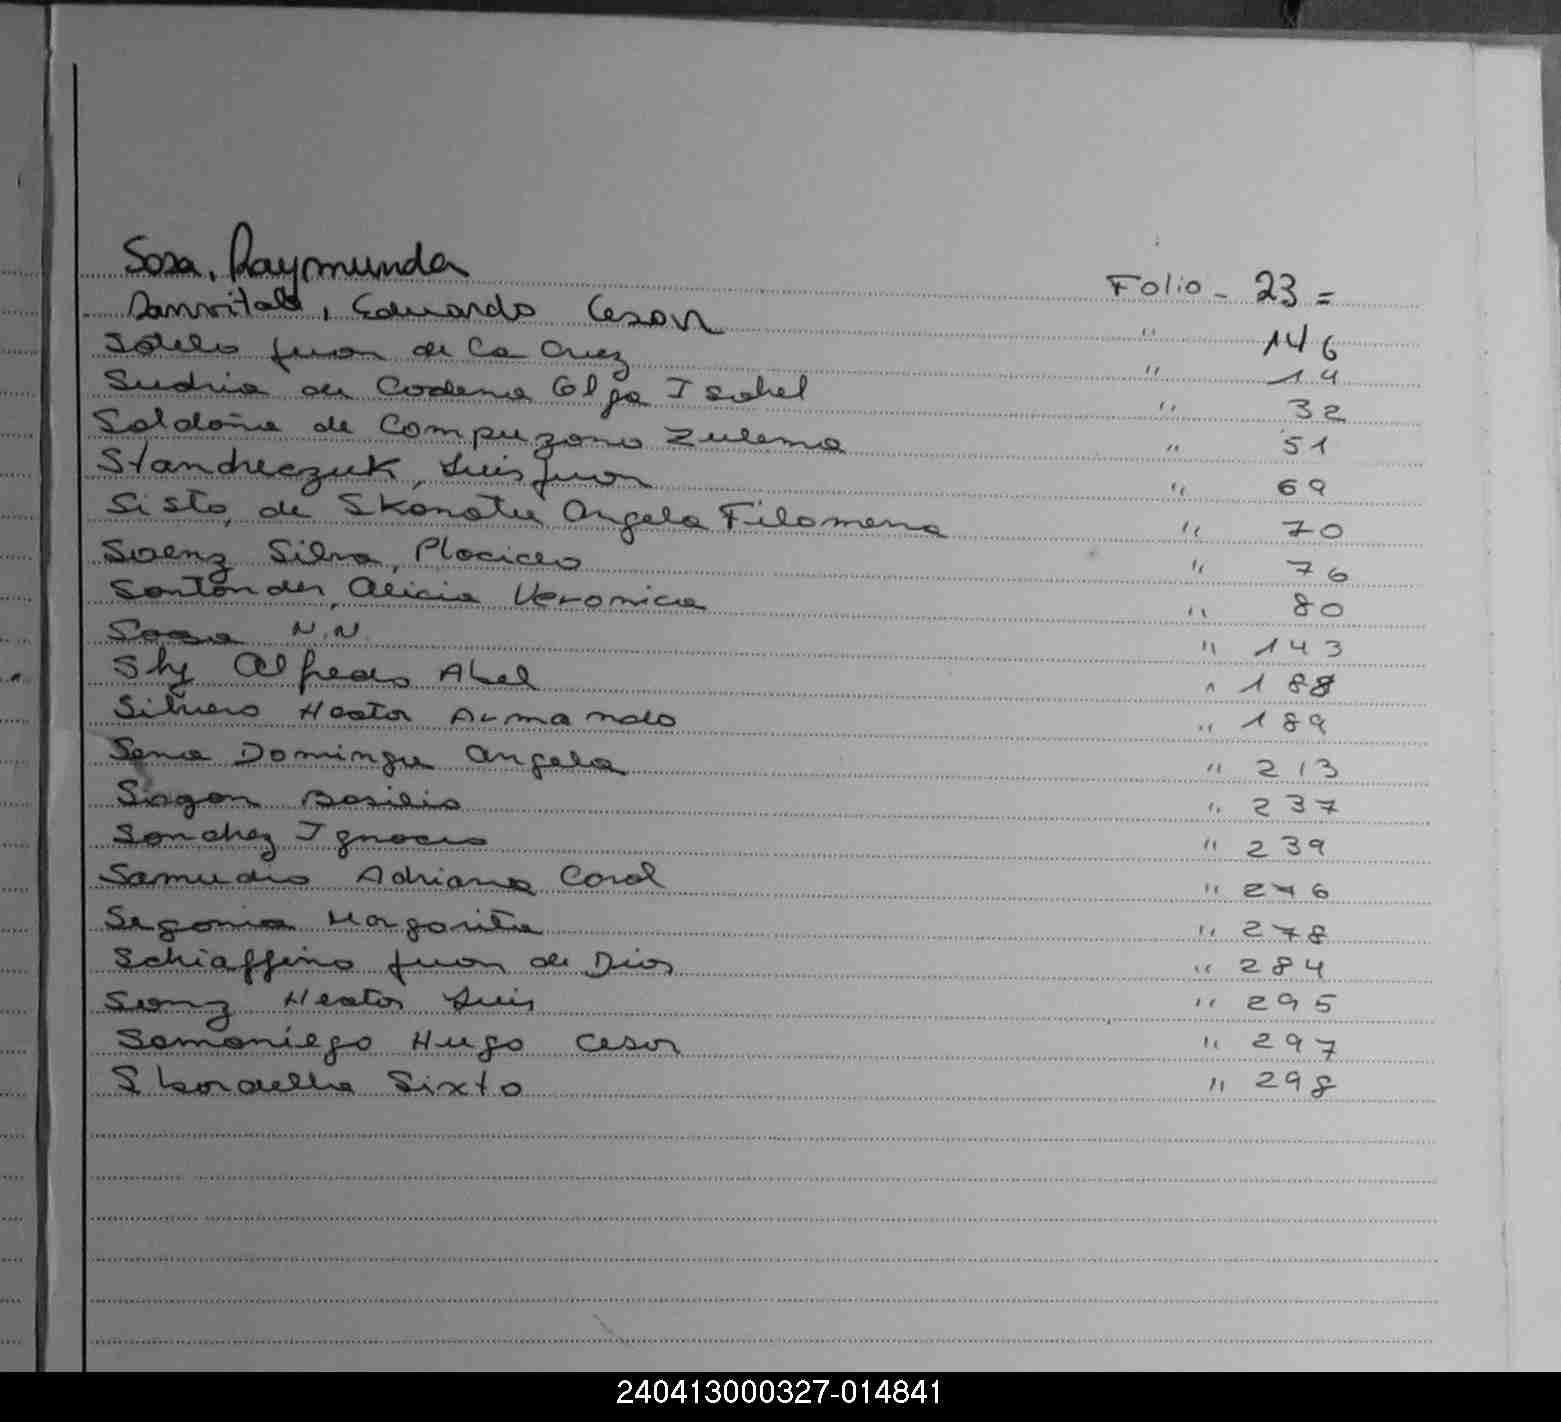 Sosa, Raymunda Folio - 23 =
Sanvitale, Eduardo Cesar " 146
Sotelo Juan de la Cruz " 14
Sudria de Codena Olga Isabel " 32
Saldaña de Compuzano Zulema " 51
Standreczuk, Luis Juan " 69
Sisto, de Skonatu Angela Filomena " 70
Saenz Silva, Placido " 76
Santander, Alicia Veronica " 80
Sosa N.N. " 143
Shy Alfredo Abel " 188
Silvero Hector Armando " 189
Sena Domingu Angela " 213
Sagan Basilio " 237
Sanchez Ignacio " 239
Samudio Adriana Coral " 276
Segovia Margarita " 278
Schiaffino Juan de Dios " 284
Sanz Hector Luis " 295
Samaniego Hugo Cesar " 297
Sixto " 298
240413000327-014841